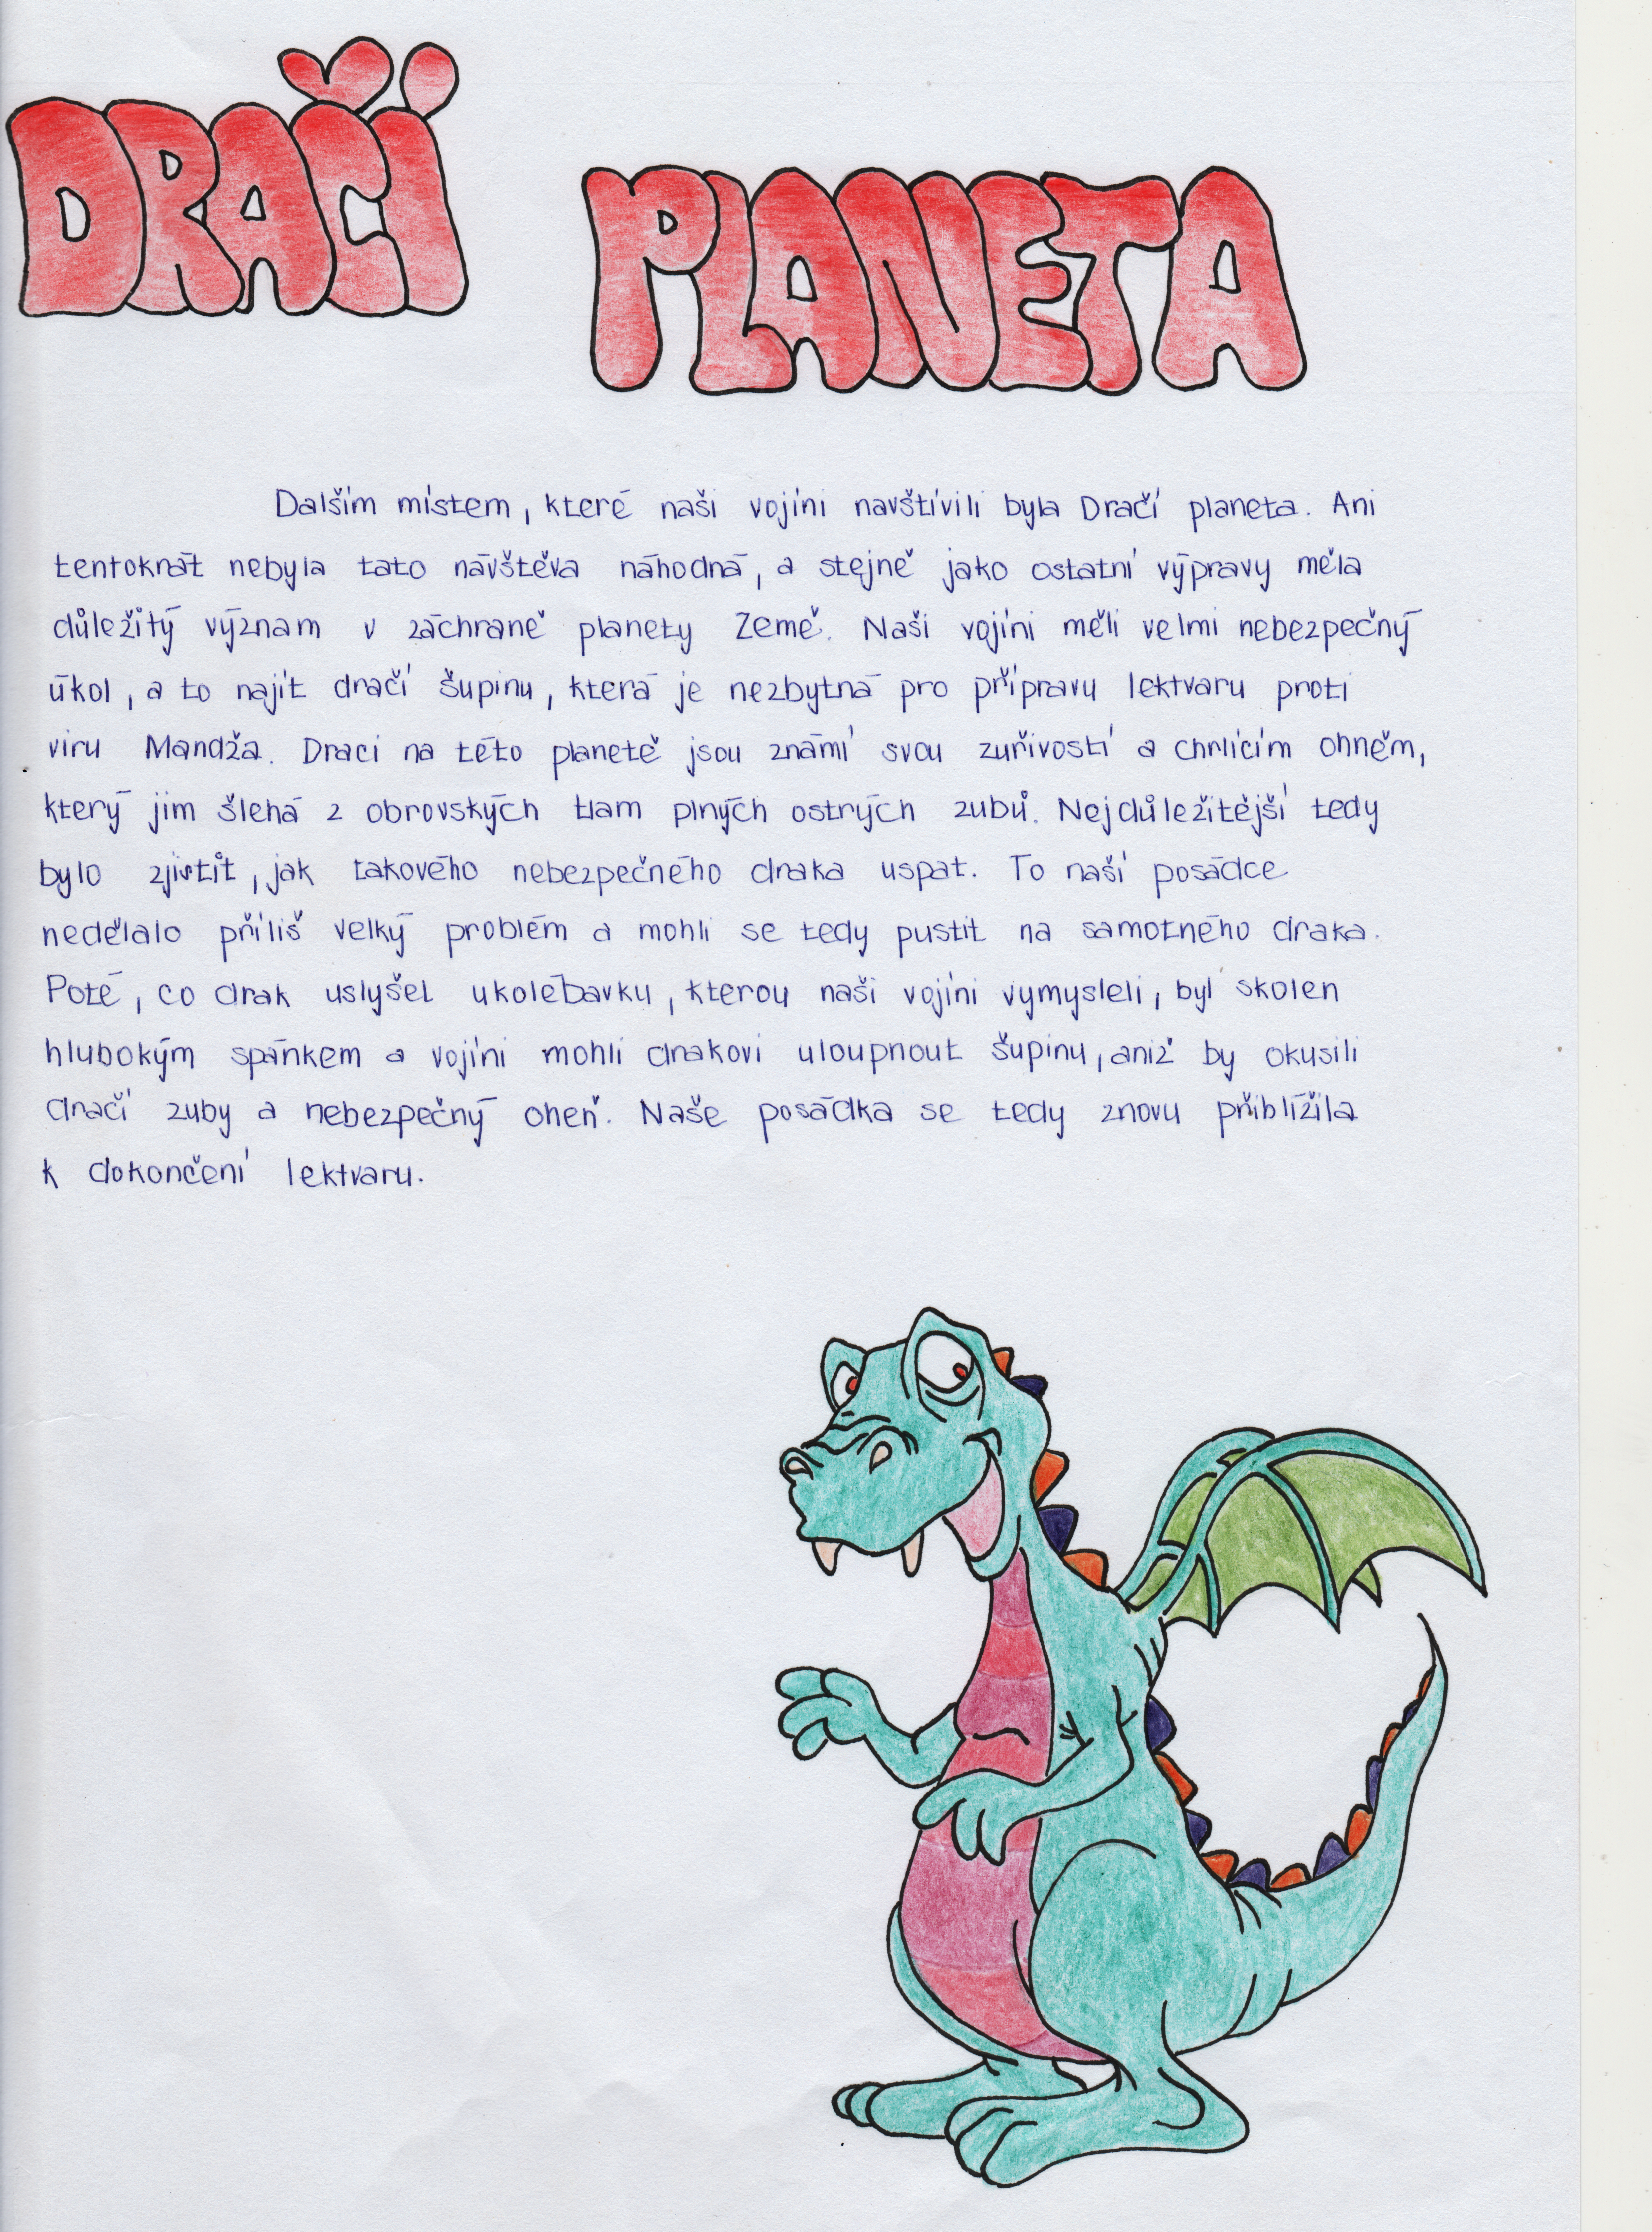 DRAČÍ
PLANETA
Dalším místem, které naši vojíni navštívili byla Dračí planeta. Ani
tentokrát nebyla tato návštěva náhodná, a stejně jako ostatní výpravy měla
důležitý význam v záchraně planety Země. Naši vojíni měli velmi nebezpečný
úkol, a to najít dračí šupinu, která je nezbytná pro přípravu lektvaru proti
viru Mandža. Draci na této planetě jsou známí svou zuřivostí a chrlícím ohněm,
který jim šlehá z obrovských tlam plných ostrých zubů. Nejdůležitější tedy
bylo zjistit, jak takového nebezpečného draka uspat. To naší posádce
nedělalo příliš velký problém a mohli se tedy pustit na samotného draka.
Poté, co drak uslyšel ukolébavku, kterou naši vojíni vymysleli, byl skolen
hlubokým spánkem a vojíni mohli drakovi uloupnout šupinu, aniž by okusili
dračí zuby a nebezpečný oheň. Naše posádka se tedy znovu přiblížila
k dokončení lektvaru.